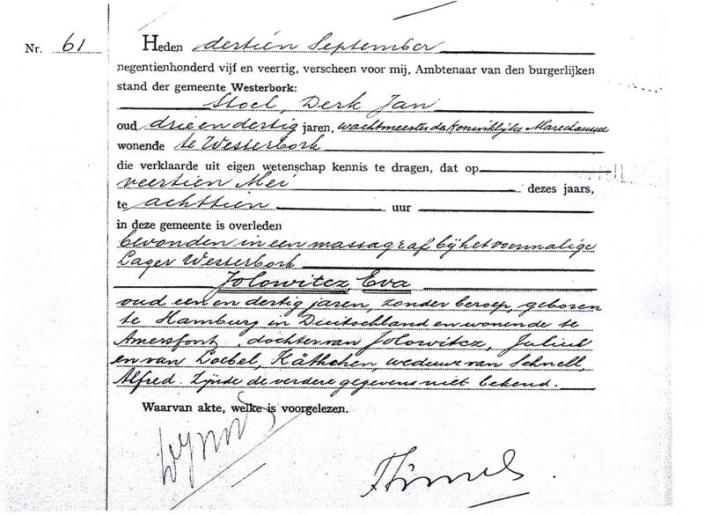 Nr. 61
Heden dertien September
negentienhonderd vijf en veertig, verscheen voor mij, Ambtenaar van den burgerlijken
stand der gemeente Westerbork:
Stoel, Derk Jan
oud drie en dertig jaren, wachtmeester der Koninklijke Marechaussee
wonende te Westerbork
die verklaarde uit eigen wetenschap kennis te dragen, dat op
veertien Mei dezes jaars,
te achttien uur
in deze gemeente is overleden
bevonden in een massagraf bij het voormalige
Lager Westerbork
Jolowitcz, Eva
oud een en dertig jaren, zonder beroep, geboren
te Hamburg in Duitschland en wonende te
Amersfoort, dochter van Jolowitcz, Julius
en van Loebel, Käthchen, weduwe van Schnell,
Alfred. Zijnde de verdere gegevens niet bekend.
Waarvan akte, welke is voorgelezen.